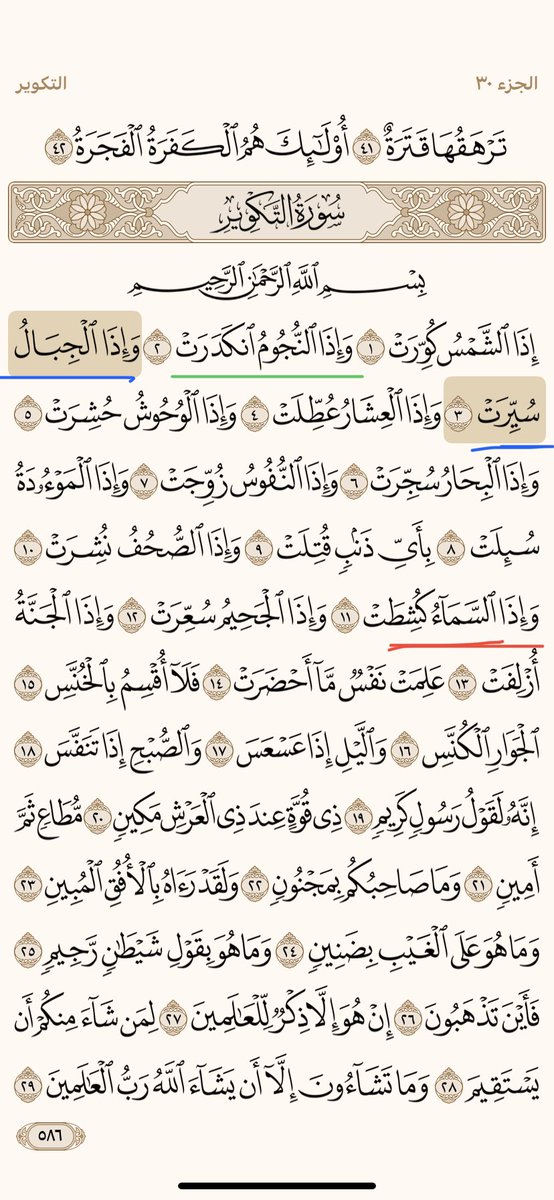 الجزء ٣٠
التكوير
تَرۡهَقُهَا قَتَرَةٌ ٤١ أُوْلَٰٓئِكَ هُمُ ٱلۡكَفَرَةُ ٱلۡفَجَرَةُ ٤٢
سُورَةُ التَّكْوِيرِ
بِسۡمِ ٱللَّهِ ٱلرَّحۡمَٰنِ ٱلرَّحِيمِ
إِذَا ٱلشَّمۡسُ كُوِّرَتۡ ١ وَإِذَا ٱلنُّجُومُ ٱنكَدَرَتۡ ٢ وَإِذَا ٱلۡجِبَالُ
سُيِّرَتۡ ٣ وَإِذَا ٱلۡعِشَارُ عُطِّلَتۡ ٤ وَإِذَا ٱلۡوُحُوشُ حُشِرَتۡ ٥
وَإِذَا ٱلۡبِحَارُ سُجِّرَتۡ ٦ وَإِذَا ٱلنُّفُوسُ زُوِّجَتۡ ٧ وَإِذَا ٱلۡمَوۡءُۥدَةُ
سُئِلَتۡ ٨ بِأَيِّ ذَنۢبٖ قُتِلَتۡ ٩ وَإِذَا ٱلصُّحُفُ نُشِرَتۡ ١٠
وَإِذَا ٱلسَّمَآءُ كُشِطَتۡ ١١ وَإِذَا ٱلۡجَحِيمُ سُعِّرَتۡ ١٢ وَإِذَا ٱلۡجَنَّةُ
أُزۡلِفَتۡ ١٣ عَلِمَتۡ نَفۡسٞ مَّآ أَحۡضَرَتۡ ١٤ فَلَآ أُقۡسِمُ بِٱلۡخُنَّسِ ١٥
ٱلۡجَوَارِ ٱلۡكُنَّسِ ١٦ وَٱلَّيۡلِ إِذَا عَسۡعَسَ ١٧ وَٱلصُّبۡحِ إِذَا تَنَفَّسَ ١٨
إِنَّهُۥ لَقَوۡلُ رَسُولٖ كَرِيمٖ ١٩ ذِي قُوَّةٍ عِندَ ذِي ٱلۡعَرۡشِ مَكِينٖ ٢٠ مُّطَاعٖ ثَمَّ
أَمِينٖ ٢١ وَمَا صَاحِبُكُم بِمَجۡنُونٖ ٢٢ وَلَقَدۡ رَءَاهُ بِٱلۡأُفُقِ ٱلۡمُبِينِ ٢٣
وَمَا هُوَ عَلَى ٱلۡغَيۡبِ بِضَنِينٖ ٢٤ وَمَا هُوَ بِقَوۡلِ شَيۡطَٰنٖ رَّجِيمٖ ٢٥
فَأَيۡنَ تَذۡهَبُونَ ٢٦ إِنۡ هُوَ إِلَّا ذِكۡرٞ لِّلۡعَٰلَمِينَ ٢٧ لِمَن شَآءَ مِنكُمۡ أَن
يَسۡتَقِيمَ ٢٨ وَمَا تَشَآءُونَ إِلَّآ أَن يَشَآءَ ٱللَّهُ رَبُّ ٱلۡعَٰلَمِينَ ٢٩
٥٨٦